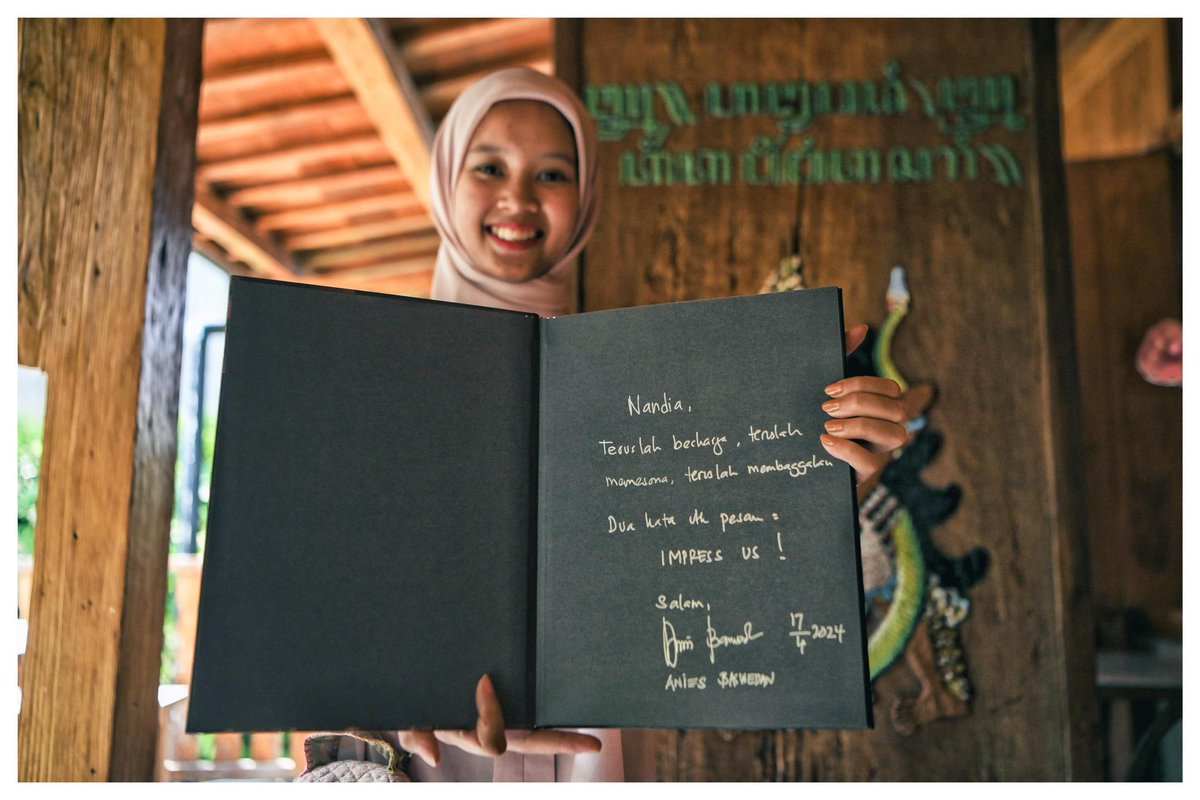 Nandia,
Teruslah berkarya, teruslah
memesona, teruslah membaggakan
Dua kata utk pesan :
IMPRESS US !
Salam,
17/4 2024
ANIES BASWEDAN